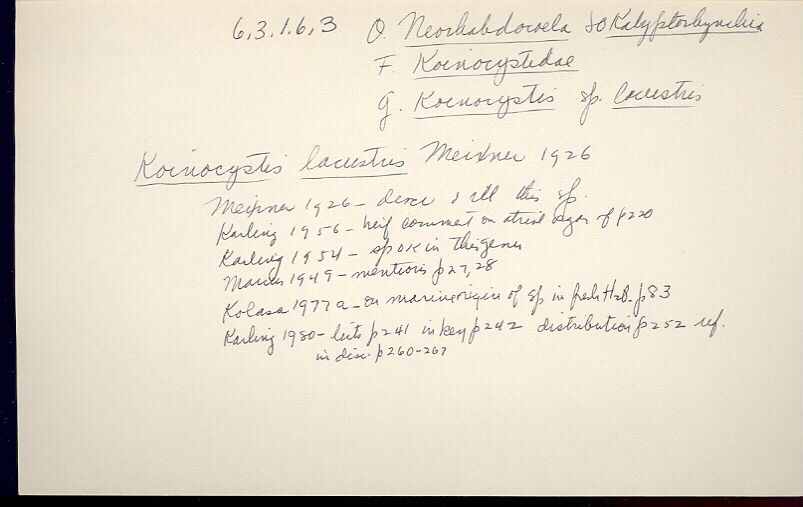 6,3.1.6,3 O. Neorhabdocoela SO Kalyptorhynchia
F. Koinocystidae
G. Koinocystis sp. lacustris
Koinocystis lacustris Meixner 1926
Meixner 1926 - descr & ill this sp.
Karling 1956 - brief comment on atrial organ of p220
Karling 1954 - sp OK in this genus
Marcus 1949 - mentions p27,28
Kolasa 1977a - on marine origin of sp in fresh H2O. p83
Karling 1980 - lists p241 in key p242 distribution p252 ref.
in disc. p260-267